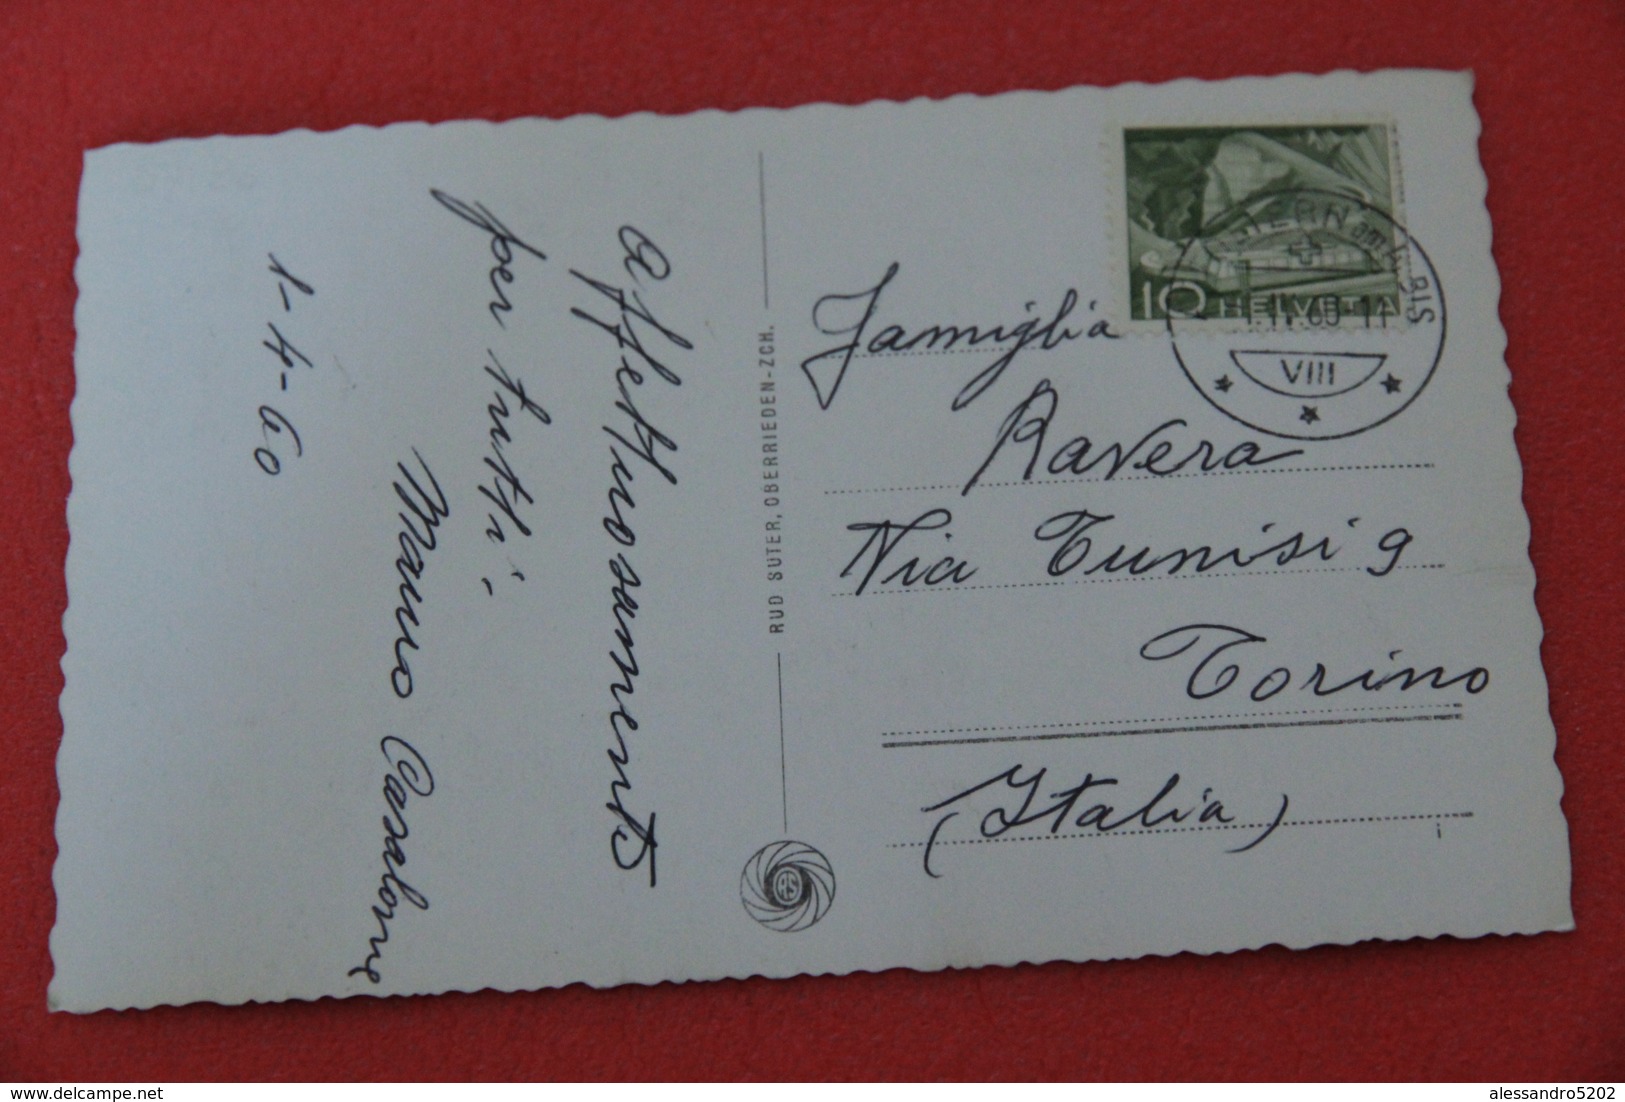 Affettuosamente
per tutti.
Mauro Casalone
1-4-60
RUD SUTER, OBERRIEDEN-ZCH.
RS
10 HELVETIA
am ALBIS
1.IV.60-11
VIII
Famiglia
Ravera
Via Tunisi 9
Torino
(Italia)
i
delcampe.net
alessandro5202